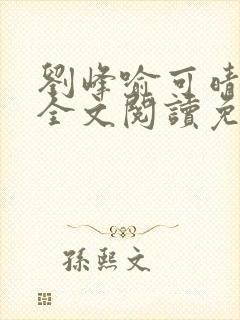 劉峰喻可晴
全文閱讀免
孫熙文